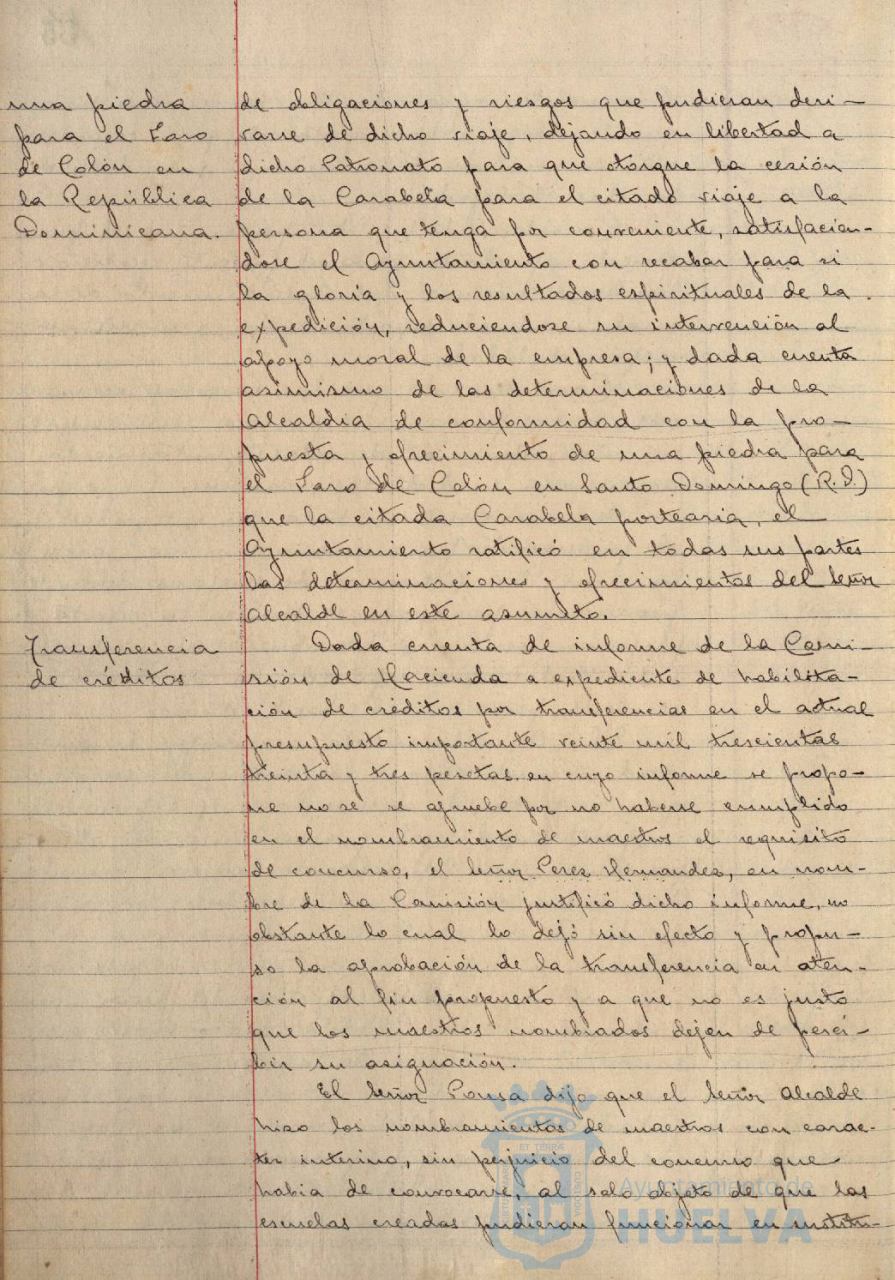 una piedra
para el Faro
de Colón en
la República
Dominicana.
de obligaciones y riesgos que pudieran deri-
varse de dicho viaje, dejando en libertad a
dicho Patronato para que otorgue la cesión
de la Carabela para el citado viaje a la
persona que tenga por conveniente, satisfacien-
dose el Ayuntamiento con recabar para si
la gloria y los resultados espirituales de la
expedición, reduciendose su intervención al
apoyo moral de la empresa; y dada cuenta
asimismo de las determinaciones de la
Alcaldia de conformidad con la pro-
puesta y ofrecimiento de una piedra para
el Faro de Colón en Santo Domingo (R.D.)
que la citada Carabela portearia, el
Ayuntamiento ratificó en todas sus partes
las determinaciones y ofrecimientos del Señor
Alcalde en este asunto.
Transferencia
de créditos
Dada cuenta de informe de la Comi-
sión de Hacienda a expediente de habilita-
ción de créditos por transferencias en el actual
presupuesto importante veinte mil trescientas
treinta y tres pesetas, en cuyo informe se propo-
ne no se se apruebe por no haberse cumplido
en el nombramiento de maestros el requisito
de concurso, el Señor Perez Hernandez, en nom-
bre de la Comisión justificó dicho informe, no
obstante lo cual lo dejó sin efecto y propu-
so la aprobación de la transferencia en aten-
ción al fin propuesto y a que no es justo
que los maestros nombrados dejen de perci-
bir su asignación.
El Señor Ponsa dijo que el Señor Alcalde
hizo los nombramientos de maestros con carac-
ter interino, sin perjuicio del concurso que
habia de convocarse, al solo objeto de que las
escuelas creadas pudieran funcionar en sustitu-
Ayuntamiento de
HUELVA